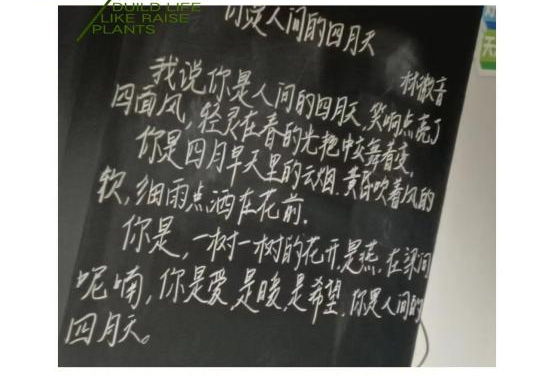 BUILD LIFE
LIKE RAISE
PLANTS
你是人间的四月天
林徽音
我说你是人间的四月天，笑响点亮了
四面风，轻灵在春的光艳中交舞着变，
你是四月早天里的云烟，黄昏吹着风的
软，细雨点洒在花前．
你是，一树一树的花开，是燕，在梁间
呢喃，你是爱，是暖，是希望，你是人间的
四月天。
天